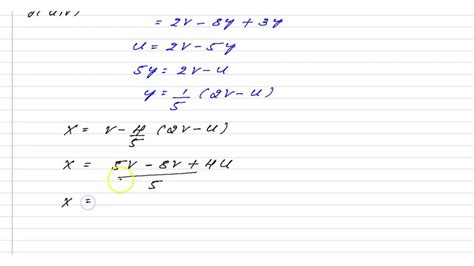 = 2v - 8y + 3y
u = 2v - 5y
5y = 2v - u
y = 1/5 (2v - u)
x = v - 4/5 (2v - u)
x = 5v - 8v + 4u / 5
x =